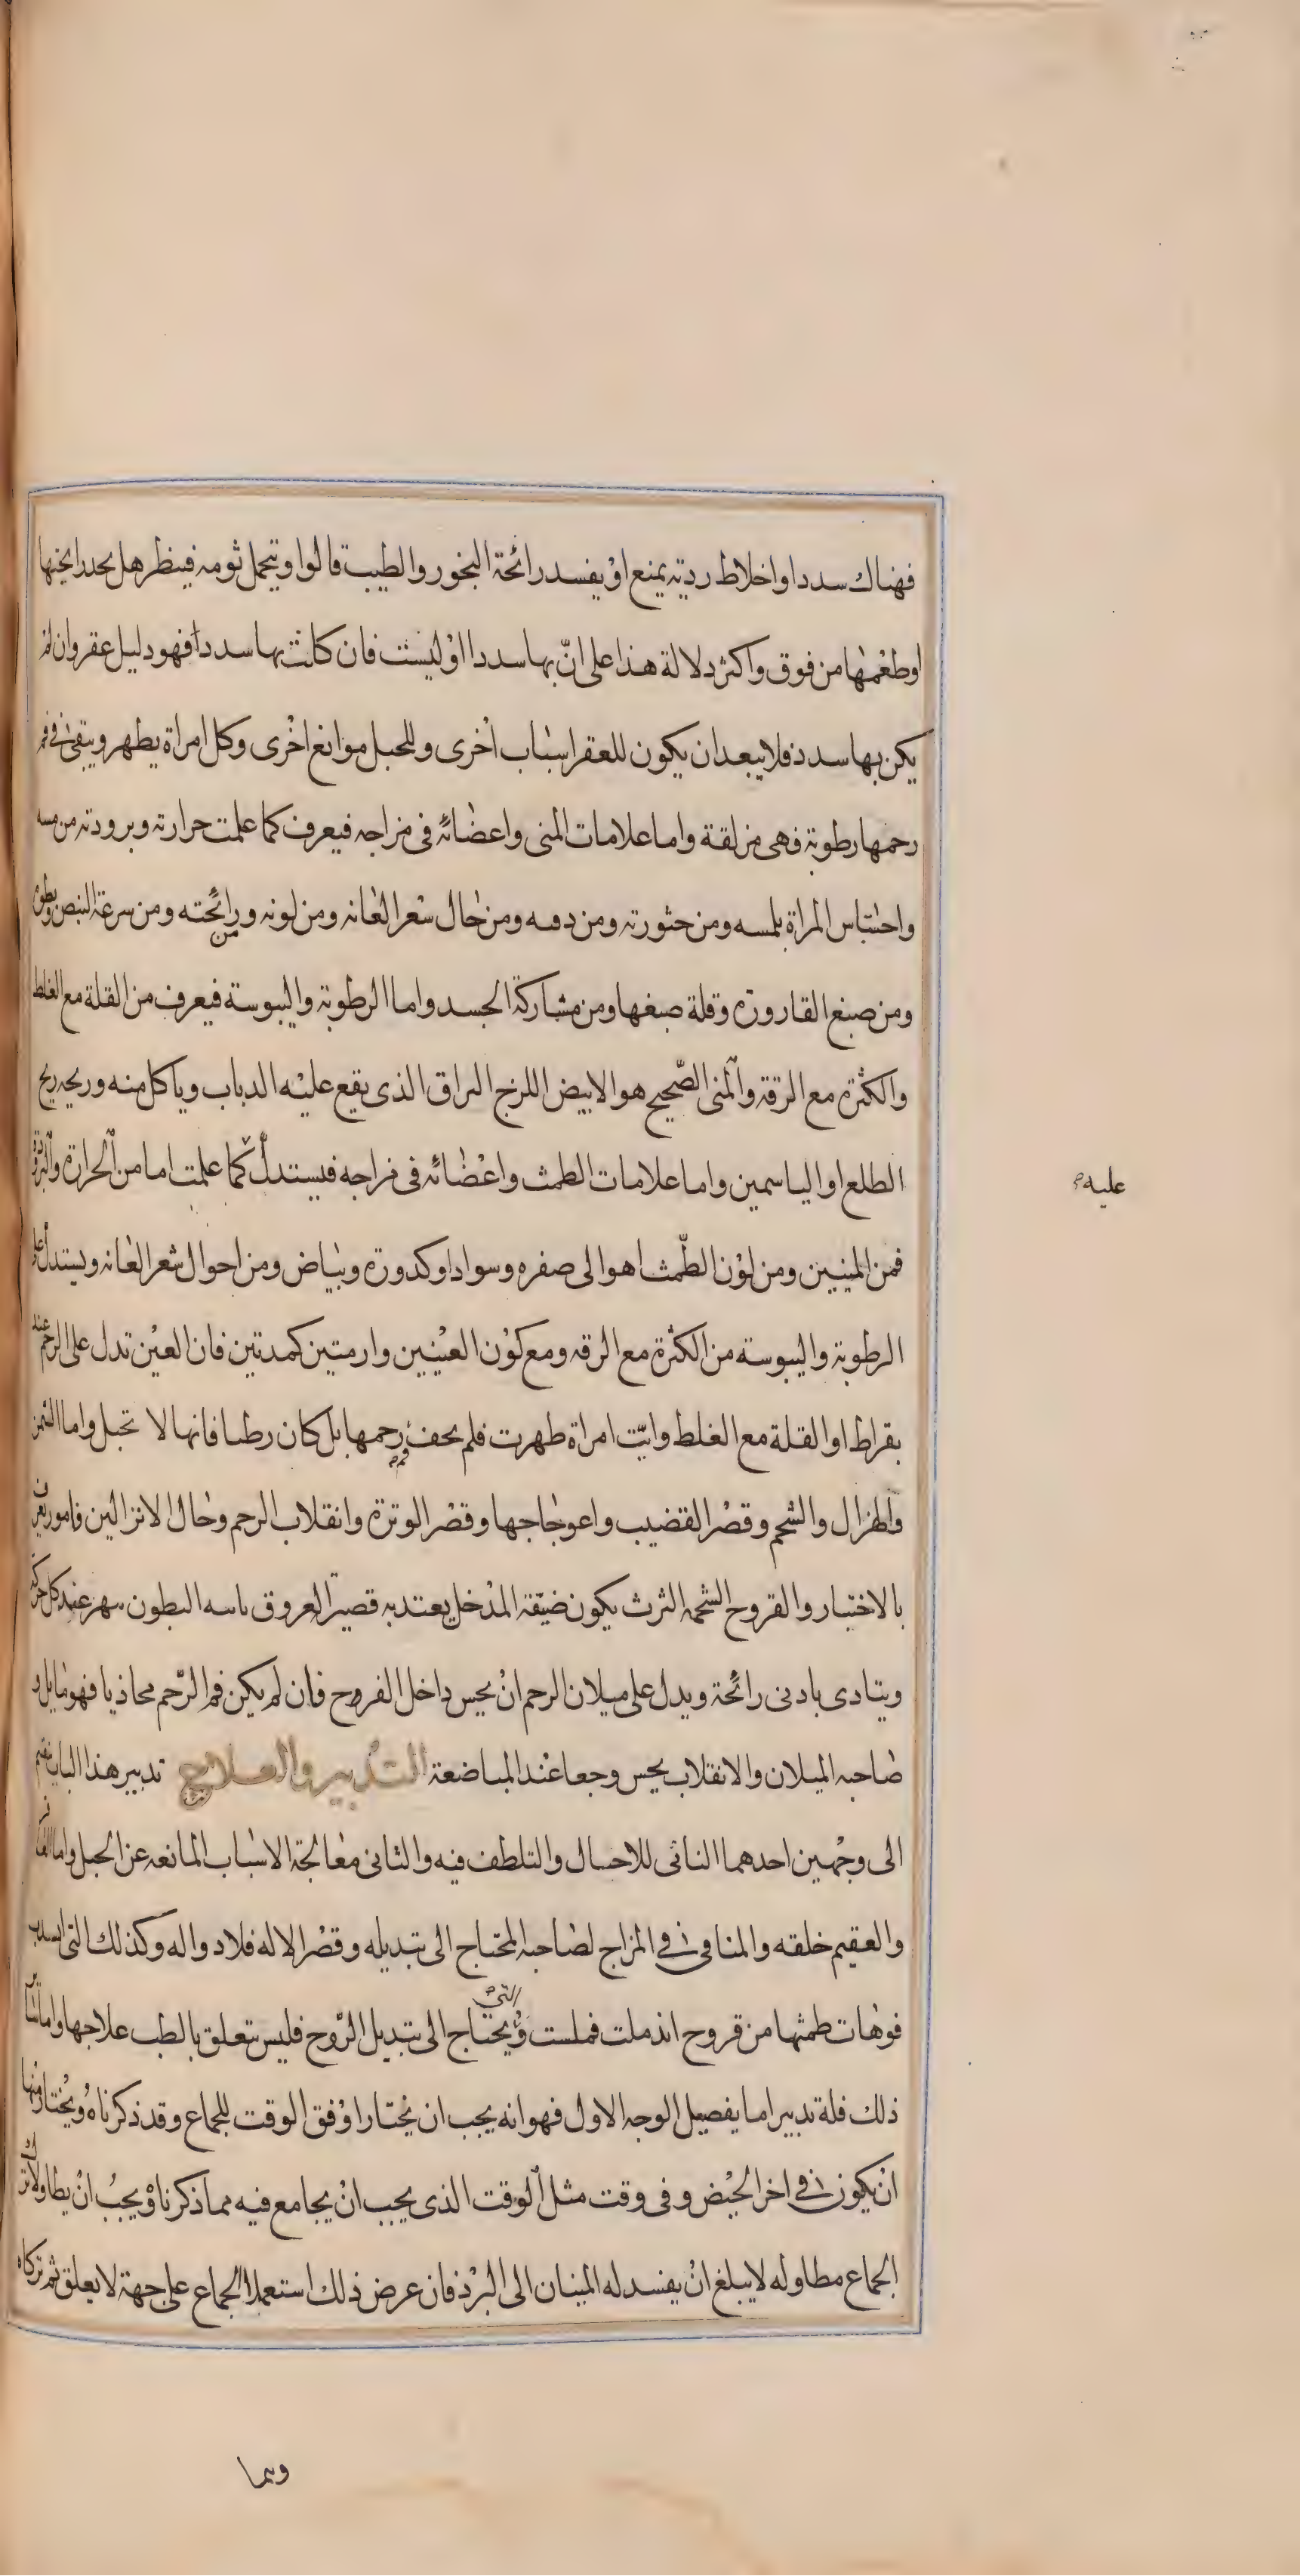 فهناك سدد او اخلاط ردية يمنع اوْ يفسد رائحة البخور والطيب قالوا وتحمل ثومة فينظر هل يجد رايحتها
اوطعْمها من فوق واكثر دلالة هذا على انّ بها سددا اوْ ليست فان كانت بها سدد فهو دليل عقر وان لمْ
يكن بها سدد فلا يبعد ان يكون للعقر اسْباب اخْرى وللحبل موانع اخْرى وكل امراة يطهر ويبقى في فم
رحمها رطوبة فهى مزلقة واما علامات المنى واعضائه فى مزاجه فيعرف كما علمت حرارته وبرودته من مسه
واحتباس المراة بلمسه ومن خثورته ومن دمه ومن حال شعر العانه ومن لونه ورائحته ومن سرعة النبض وبطوه
ومن صبغ القاروره وقلة صبغها ومن مشاركة الجسد واما الرطوبة واليبوسة فيعرف من القلة مع الغلط
والكثرة مع الرقة والمنى الصّحيح هو الابيض اللزج البراق الذى يقع عليْه الدباب وياكل منه وريحه ريح
الطلع او الياسمين واما علامات الطمث واعْضائه فى مزاجه فيستدلّ كما علمت اما من الحرارة والبرودة
عليه
فمن المنيين ومن لوْن الطّمث اهو الى صفره وسواد او كدورة وبياض ومن احوال شعر العانه ويستدل على
الرطوبة واليبوسه من الكثرة مع الرقه ومع كوْن العيْنيين وارمتين كمدتين فان العيْن تدل على الرحم عند
بقراط او القلة مع الغلط وايّت امراة طهرت فلم يجف فم رحمها بل كان رطبا فانها لا تحبل واما السمن
والهزال والشحم وقصْر القضيب واعوجاجها وقصْر الوترة وانقلاب الرحم وحال الانزالين فامور يعرف
بالاختبار والقروح الشحمه الثرث يكون ضيّقة المدْخل بعتدبه قصير العروق باسه البطون سهر عند كل حركة
ويتادى بادنى رائحة ويدل على ميلان الرحم انْ يحس داخل الفروح فان لم يكن فم الرّحم محاذيا فهو مايل و
صاحبه الميلان والانقلاب يحس وجعا عند المباضعة التدبير والعلاج تدبير هذا الباب ينقسم
الى وجْهين احدهما التائى للاحسال والتلطف فيه والثانى معالجة الاسْباب المانعه عن الحبل واما العاقر
والعقيم خلقه والمنافى في المزاج لصاحبه المحتاج الى تبديله وقصْر الاله فلا دواله وكذلك التى انسدت
فوْهات طمثها من قروح اندملت فملست والتي يحتاج الى تبديل الزّوج فليس تتعلق بالطب علاجها واما سائر
ذلك فلة تدبير اما يفصيل الوجه الاول فهو انه يجب ان يختار اوْفق الوقت للجماع وقد ذكرناهُ ويُختار منها
انْ يكون في اخر الحيْض وفى وقت مثل الوقت الذى يجب انْ يجامع فيه مما ذكرناهْ ويجبُ انْ يطاولا ترك
الجماع مطاوله لا يبلغ انْ يفسد له المنيان الى البرْد فان عرض ذلك استعملا الجماع على جهة لا يعلق ثم تركاه
وبما